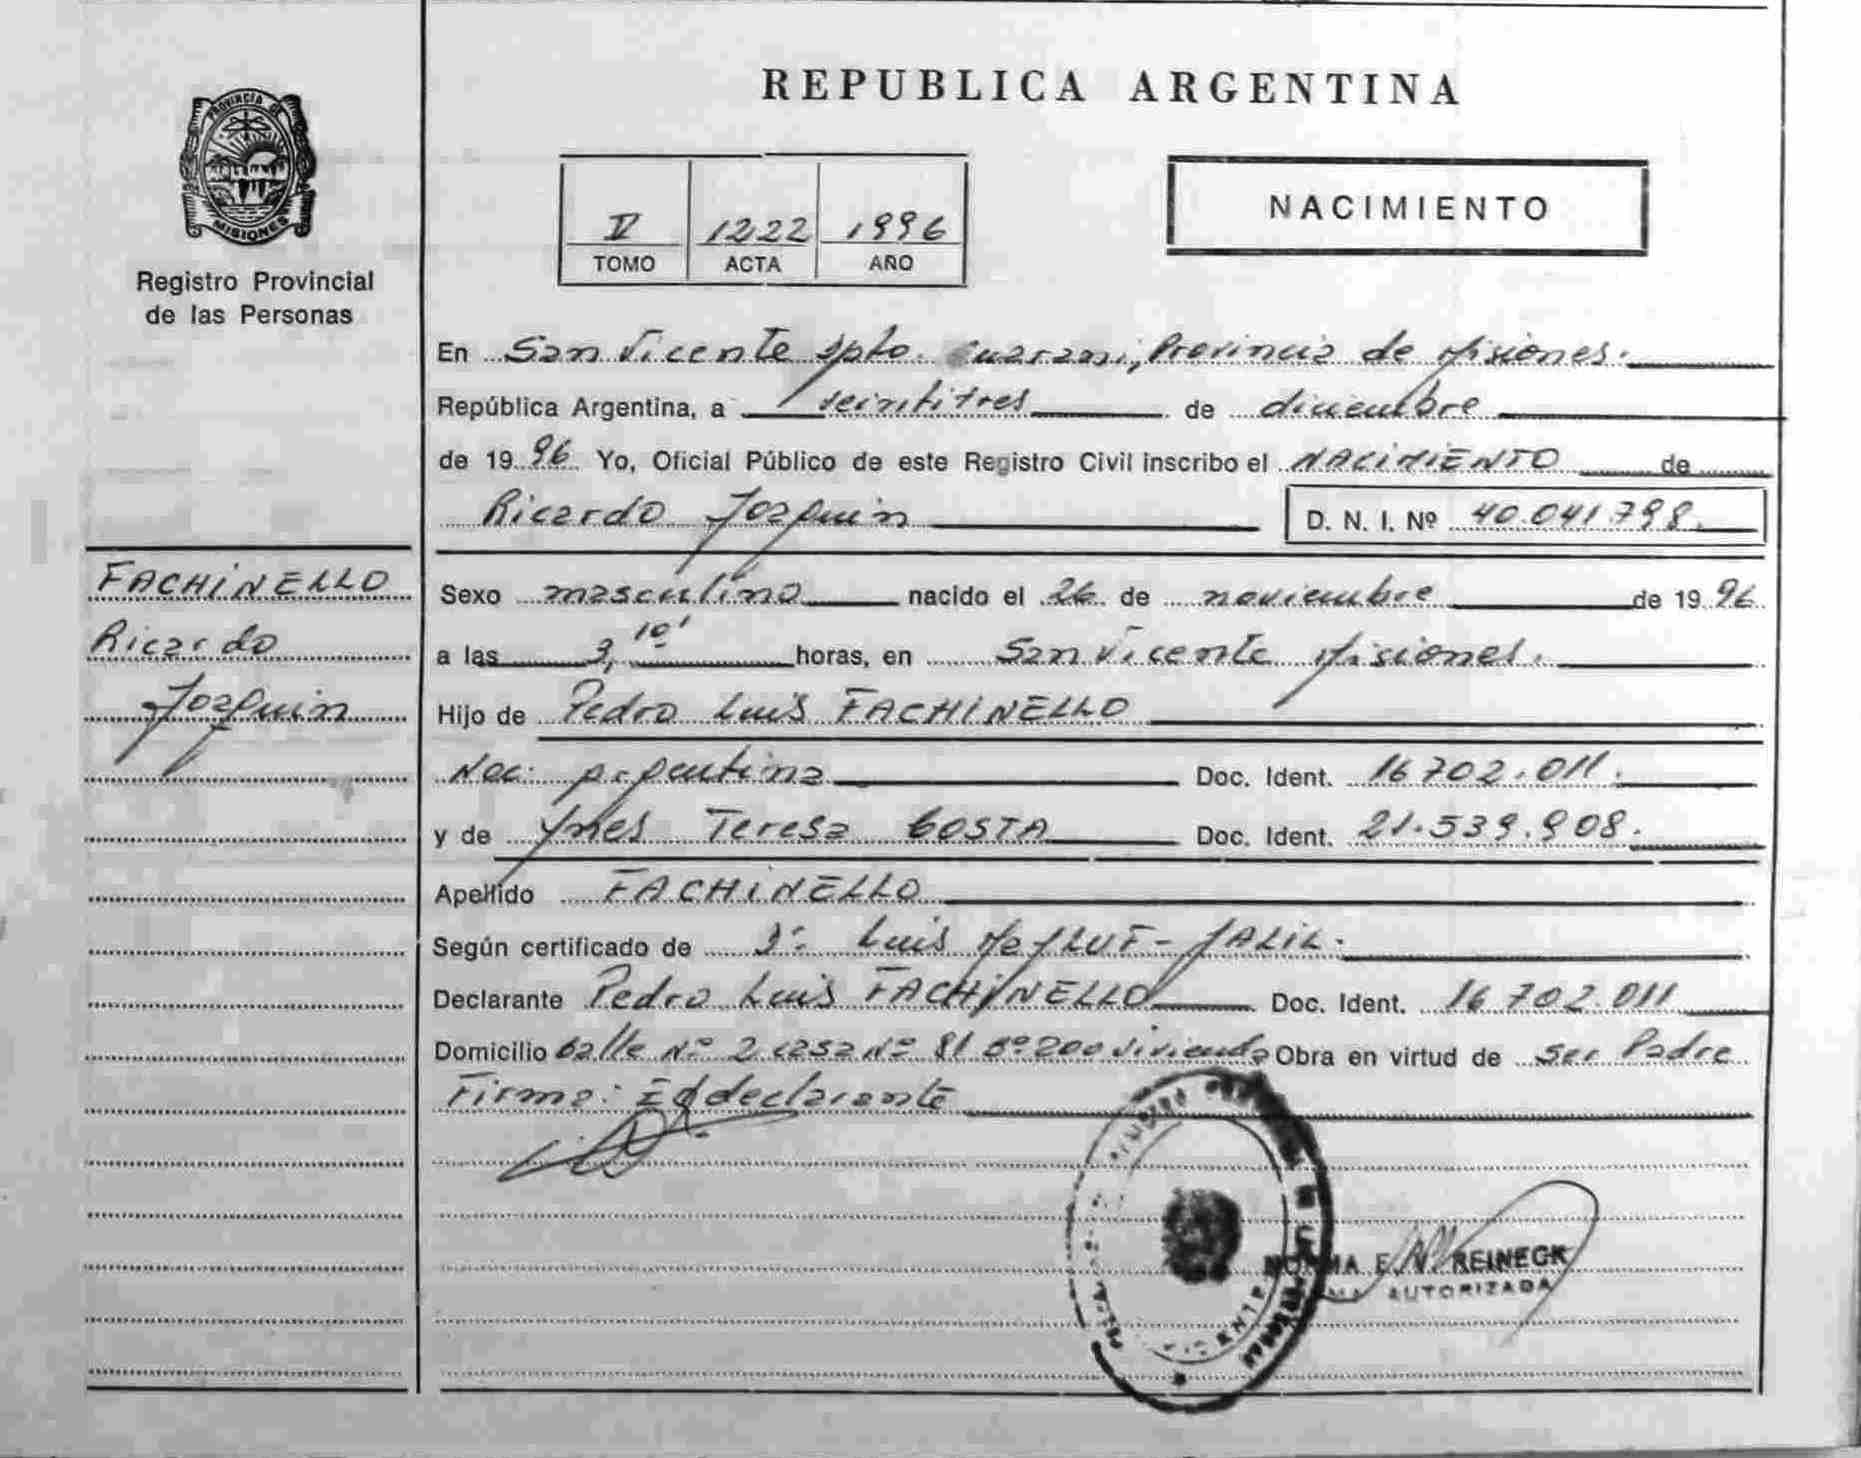 PROVINCIA DE
MISIONES
Registro Provincial
de las Personas
FACHINELLO
Ricardo
Joaquin
REPUBLICA ARGENTINA
V 1222 1996
TOMO ACTA AÑO
NACIMIENTO
En San Vicente Dpto. Guarani, Provincia de Misiones.
República Argentina, a veintitres de diciembre
de 1996 Yo, Oficial Público de este Registro Civil inscribo el NACIMIENTO de
Ricardo Joaquin D. N. I. Nº 40.041.798.
Sexo masculino nacido el 26 de noviembre de 1996
a las 3,10' horas, en San Vicente Misiones.
Hijo de Pedro Luis FACHINELLO
Nac: argentina Doc. Ident. 16.702.011.
y de Ynes Teresa COSTA Doc. Ident. 21.539.908.
Apellido FACHINELLO
Según certificado de Luis JALIL.
Declarante Pedro Luis FACHINELLO Doc. Ident. 16.702.011
Domicilio Calle Nº 2 casa Nº 81 Bº 200 Vivienda Obra en virtud de ser Padre
Firma: El declarante
NORMA E. REINECK
AUTORIZADA